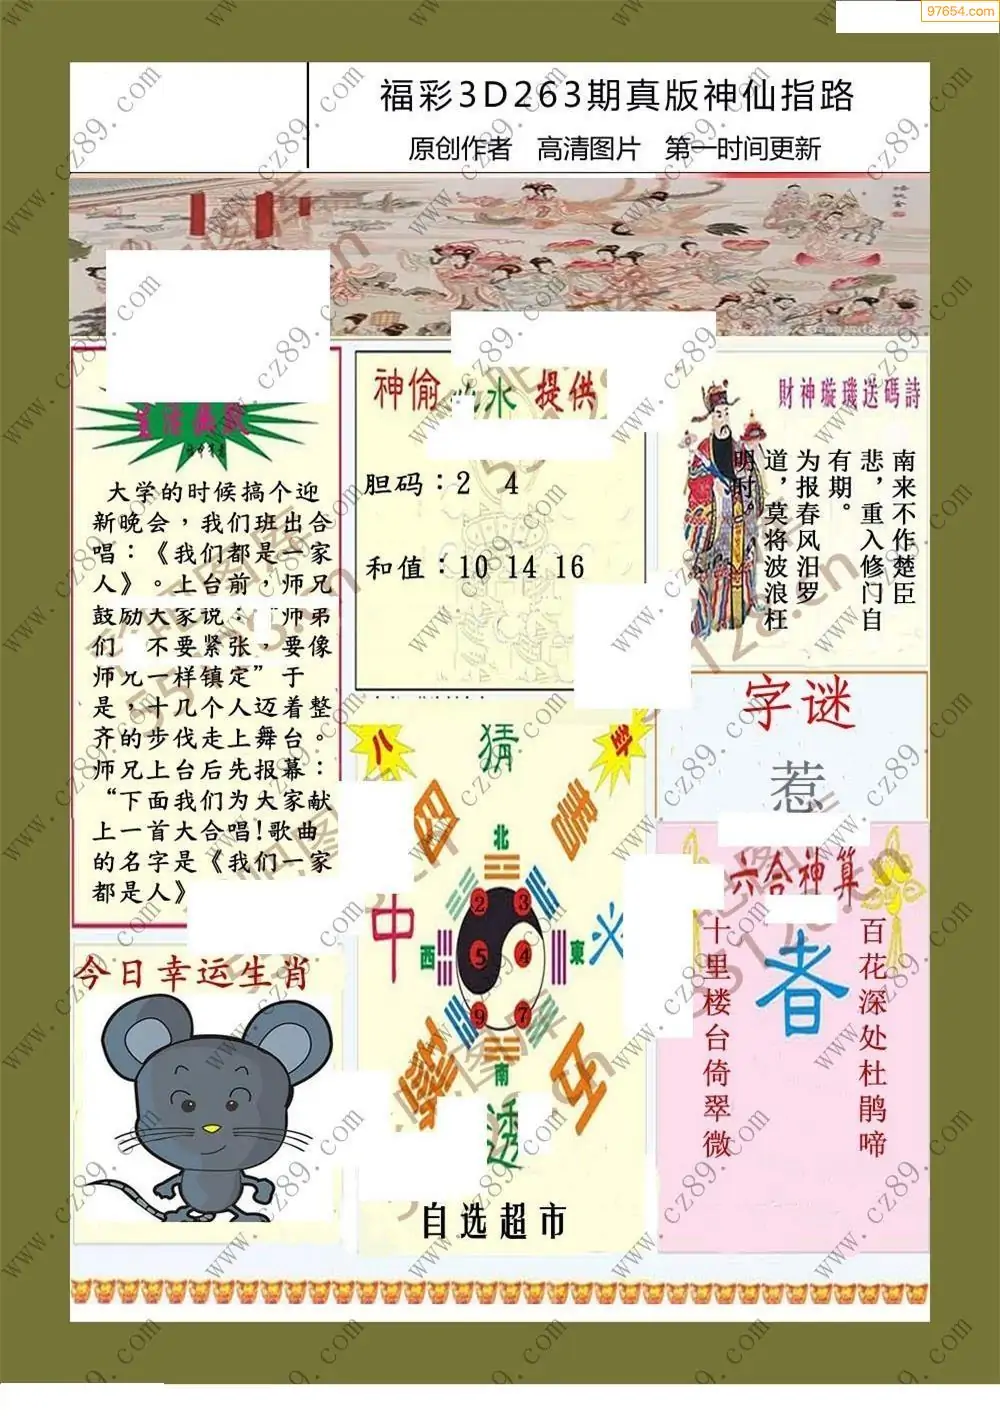 97654.com
福彩3D263期真版神仙指路
原创作者 高清图片 第一时间更新
大学的时候搞个迎
新晚会，我们班出合
唱：《我们都是一家
人》。上台前，师兄
鼓励大家说：“师弟
们 不要紧张，要像
师兄一样镇定”于
是，十几个人迈着整
齐的步伐走上舞台。
师兄上台后先报幕：
“下面我们为大家献
上一首大合唱！歌曲
的名字是《我们一家
都是人》
神偷 水 提供
胆码：2 4
和值：10 14 16
財神璇璣送碼詩
南来不作楚臣
悲，重入修门自
有期。
为报春风汨罗
道，莫将波浪枉
明时。
字谜
惹
八
卦
猜
图
中
透
北
西
東
南
2 3
5 4
9 7
自选超市
六合神算
百花深处杜鹃啼
者
十里楼台倚翠微
今日幸运生肖
www.cz89.com